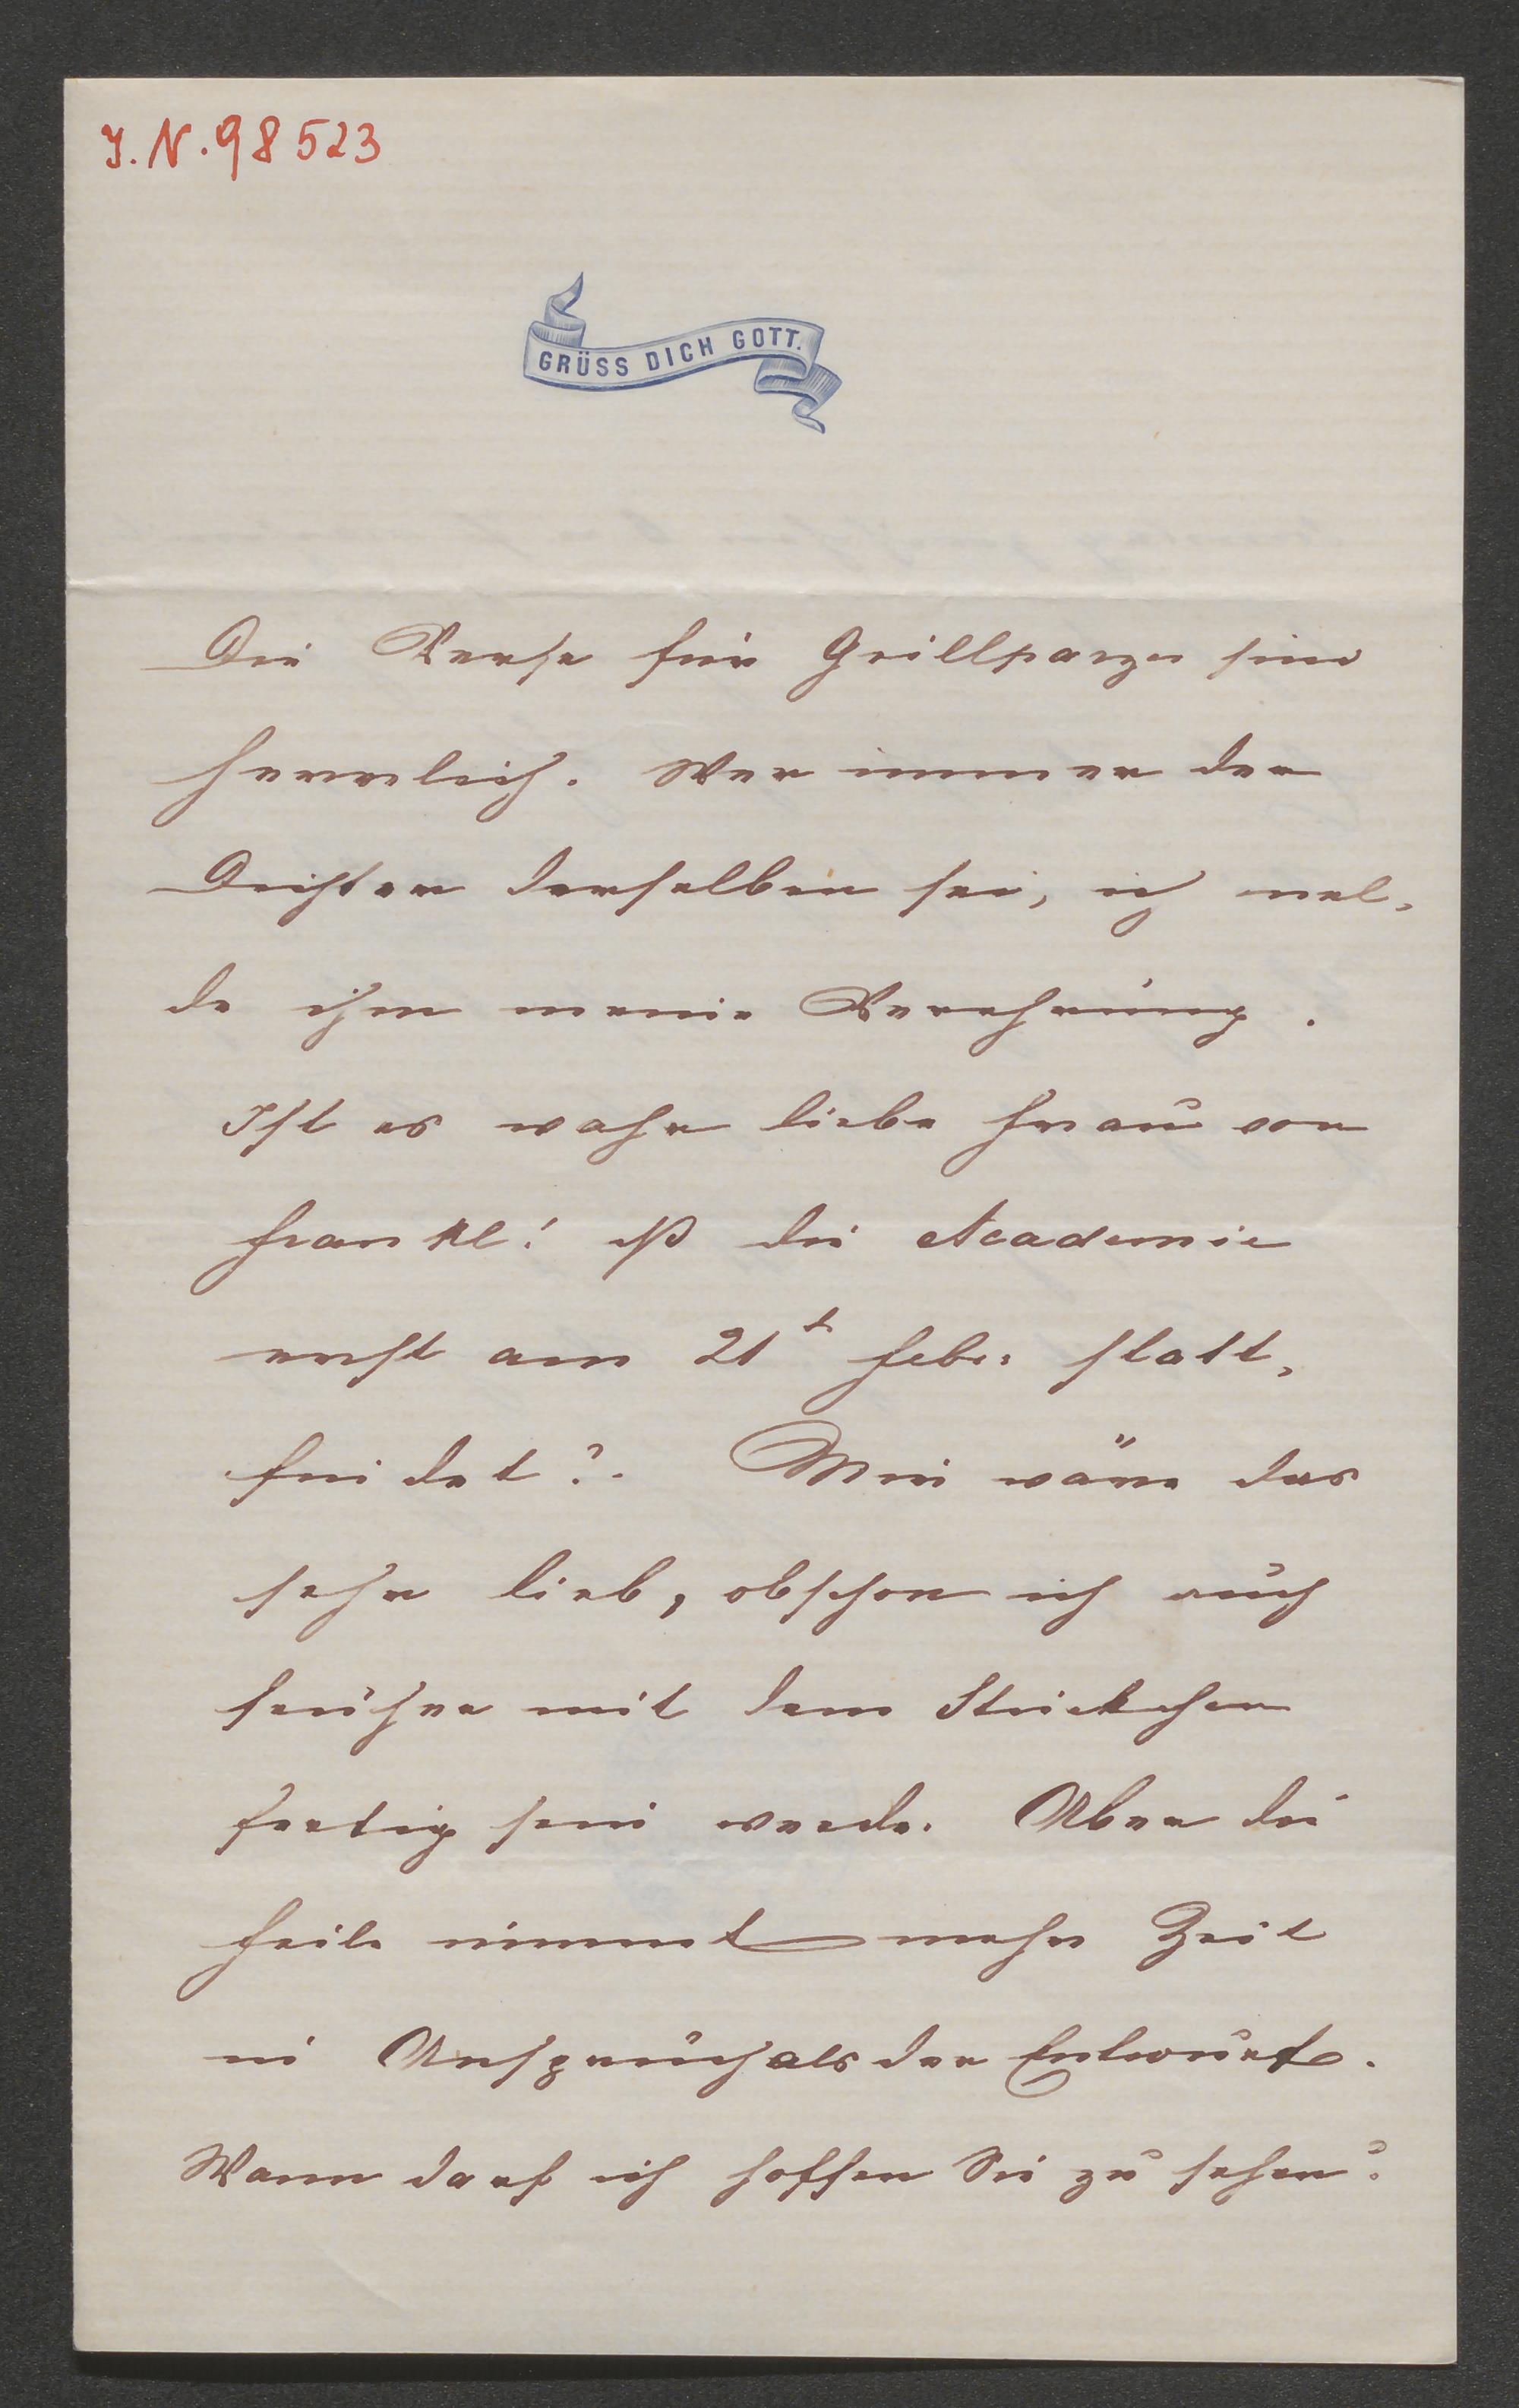 J. N. 98523
GRÜSS DICH GOTT.
Die Verse für Grillparzer sind
herrlich. Wer immer der
Dichter derselben sei, ich mel-
de ihm meine Verehrung.
Ist es wahr liebe Frau von
Frankl! daß die Academie
erst am 21t Feber statt-
findet?. Mir wäre das
sehr lieb, obschon ich auch
früher mit dem Stückchen
fertig sein werde. Aber die
Feile nimmt mehr Zeit
in Anspruch als der Entwurf.
Wann darf ich hoffen Sie zu sehen?